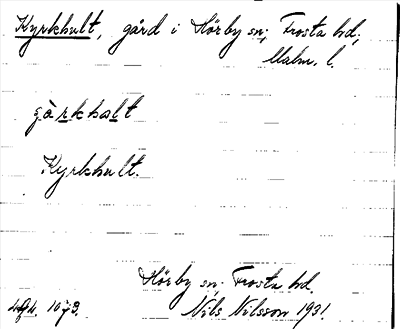 Kyrkhult, gård i Hörby sn; Frosta hd,
Malm. l.
Kyrkhult.
Hörby sn; Frosta hd.
Nils Nilsson 1931.